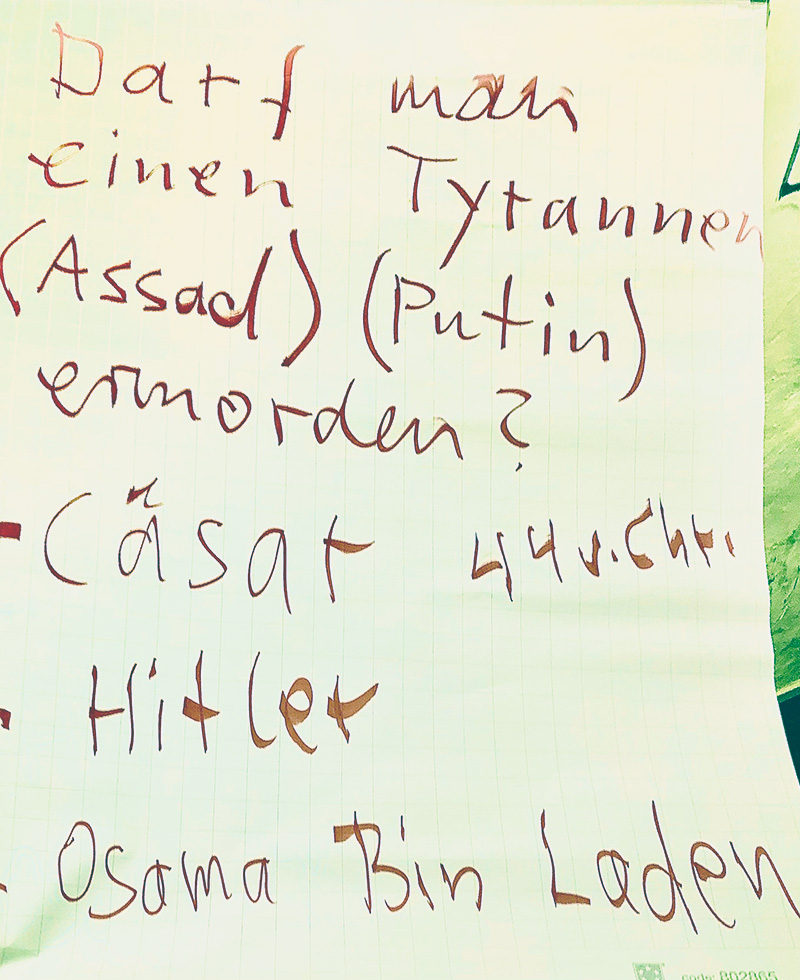 Darf man
einen Tyrannen
(Assad) (Putin)
ermorden?
- Cäsar 44 v. Chr.
- Hitler
- Osama Bin Laden
code: 802865